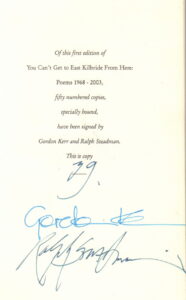 Of this first edition of
You Can't Get to East Kilbride From Here:
Poems 1968 - 2003,
fifty numbered copies,
specially bound,
have been signed by
Gordon Kerr and Ralph Steadman.
This is copy
29.
Gordon
Ralph Steadman